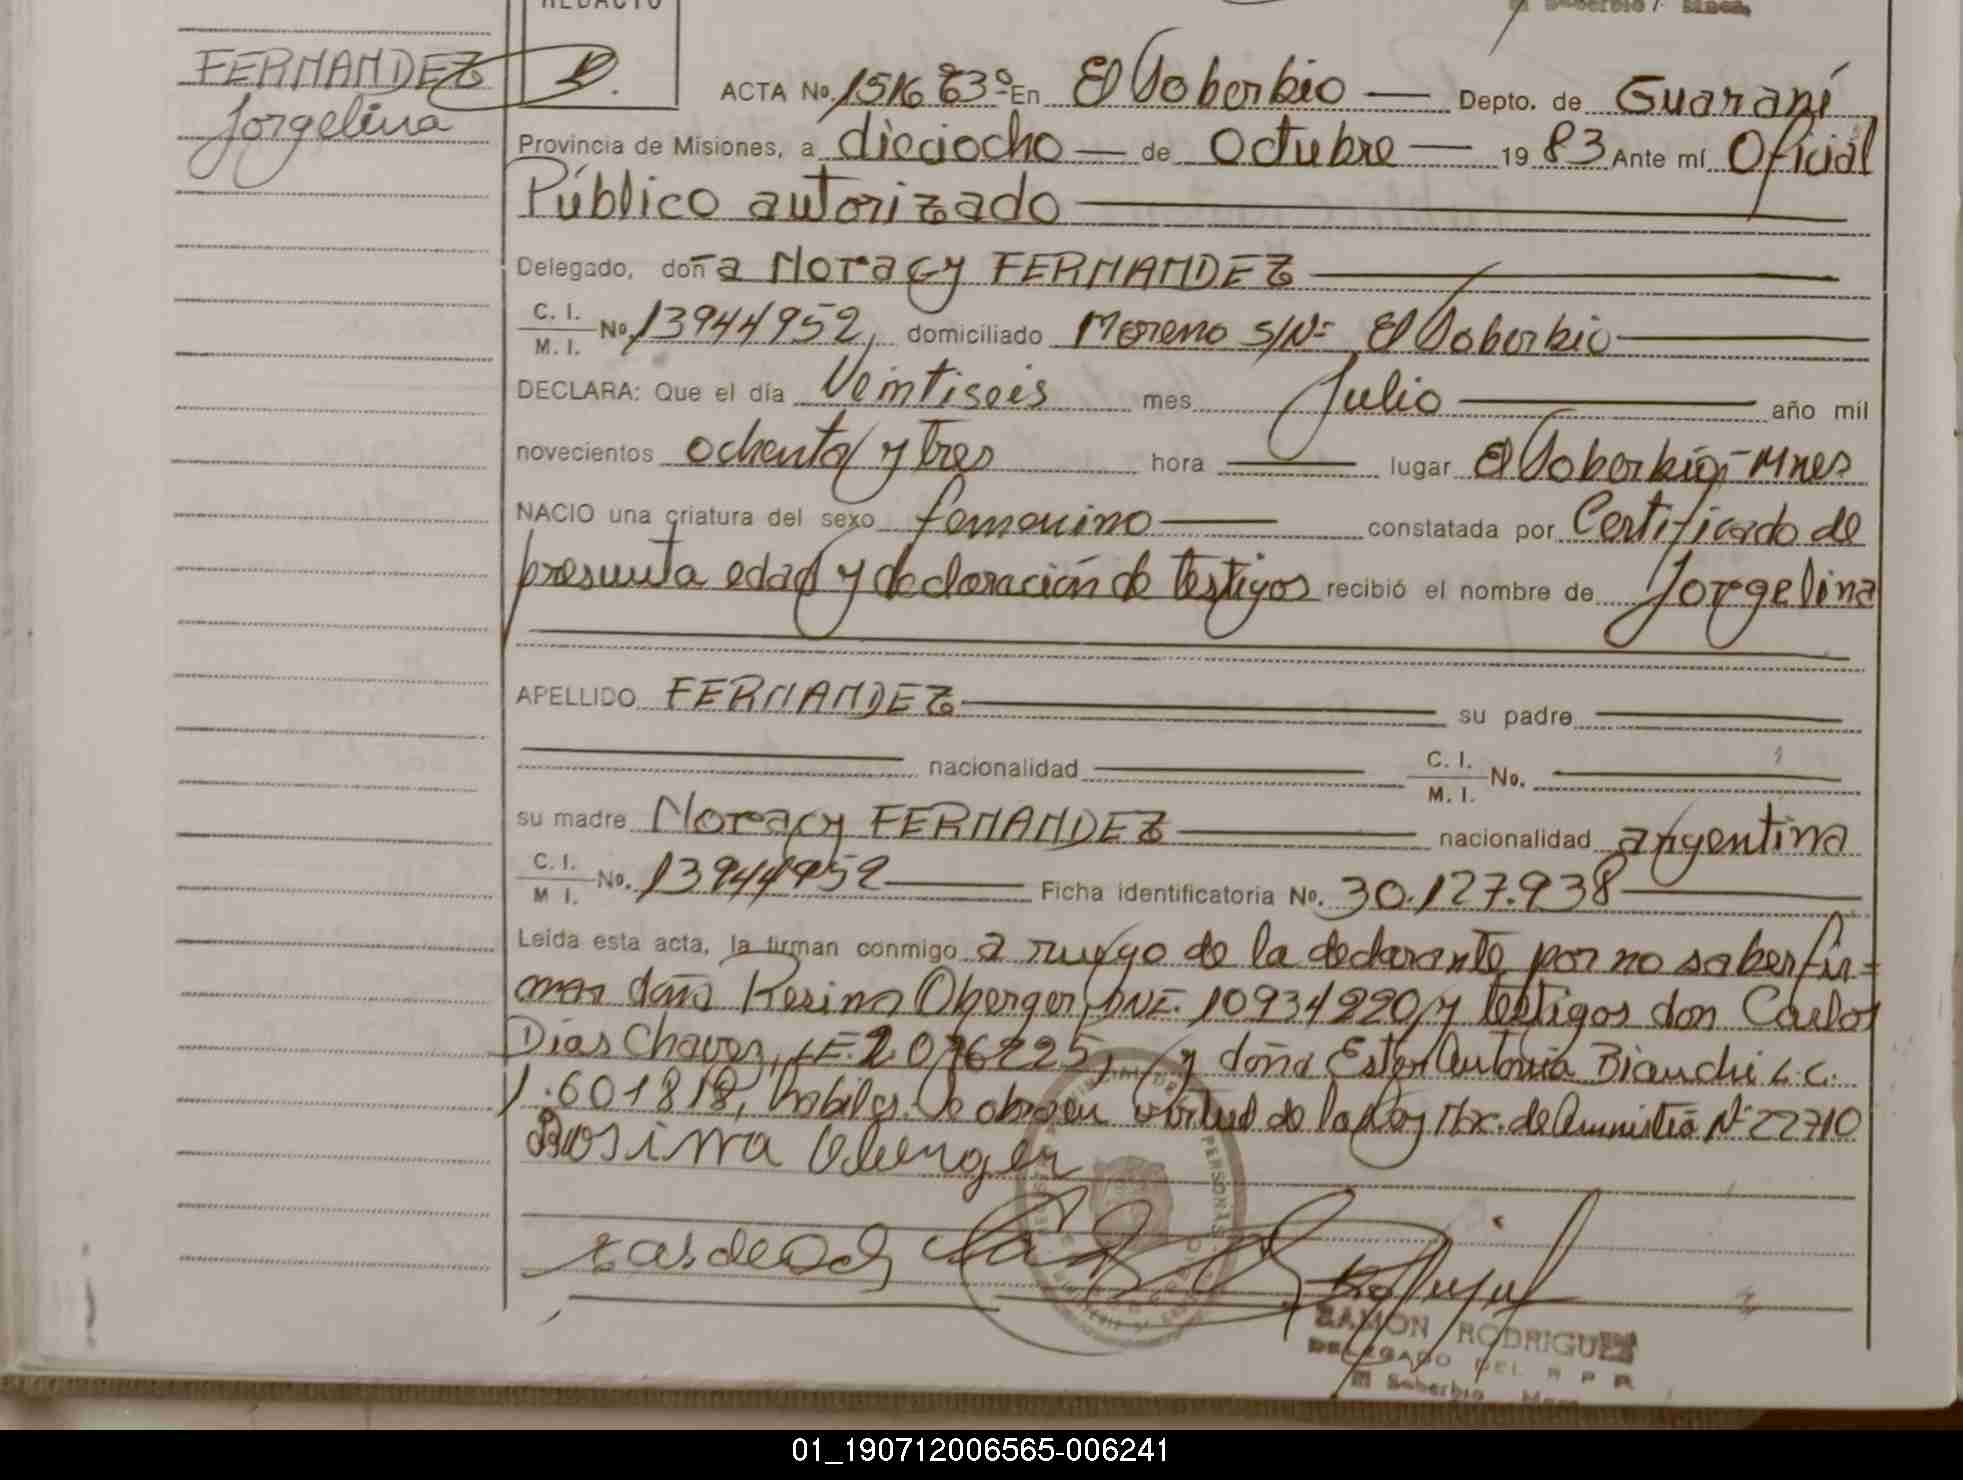 REDACTO
El Soberbio, Mnes.
FERNANDEZ
Jorgelina
ACTA No. 1516 63º En El Soberbio — Depto. de Guaraní
Provincia de Misiones, a dieciocho — de Octubre — 19 83 Ante mí Oficial
Público autorizado
Delegado, doña Noracy FERNANDEZ
C. I.
M. I. No. 13944952, domiciliado Moreno S/Nº El Soberbio
DECLARA: Que el día Veintiseis mes Julio — año mil
novecientos ochenta y tres hora — lugar El Soberbio, Mnes
NACIO una criatura del sexo femenino — constatada por Certificado de
presunta edad y declaración de testigos recibió el nombre de Jorgelina
APELLIDO FERNANDEZ — su padre
nacionalidad — C. I.
M. I. No.
su madre Noracy FERNANDEZ — nacionalidad argentina
C. I.
M. I. No. 13944952 — Ficha identificatoria No. 30.127.938
Leída esta acta, la firman conmigo a ruego de la declarante por no saber fir=
mar doña Rosina Oberger, DNI. 10934220, y testigos don Carlos
Días Chavez, LE. 2.076225, y doña Ester Antonia Bianchi L.C.
1.601818, habiles. Se obra en virtud de la Ley Nac. de Amnistia Nº 22710
Rosina Oberger
PERSONAS
RAMON RODRIGUEZ
DELEGADO DEL R P R
El Soberbio Mnes
01_190712006565-006241